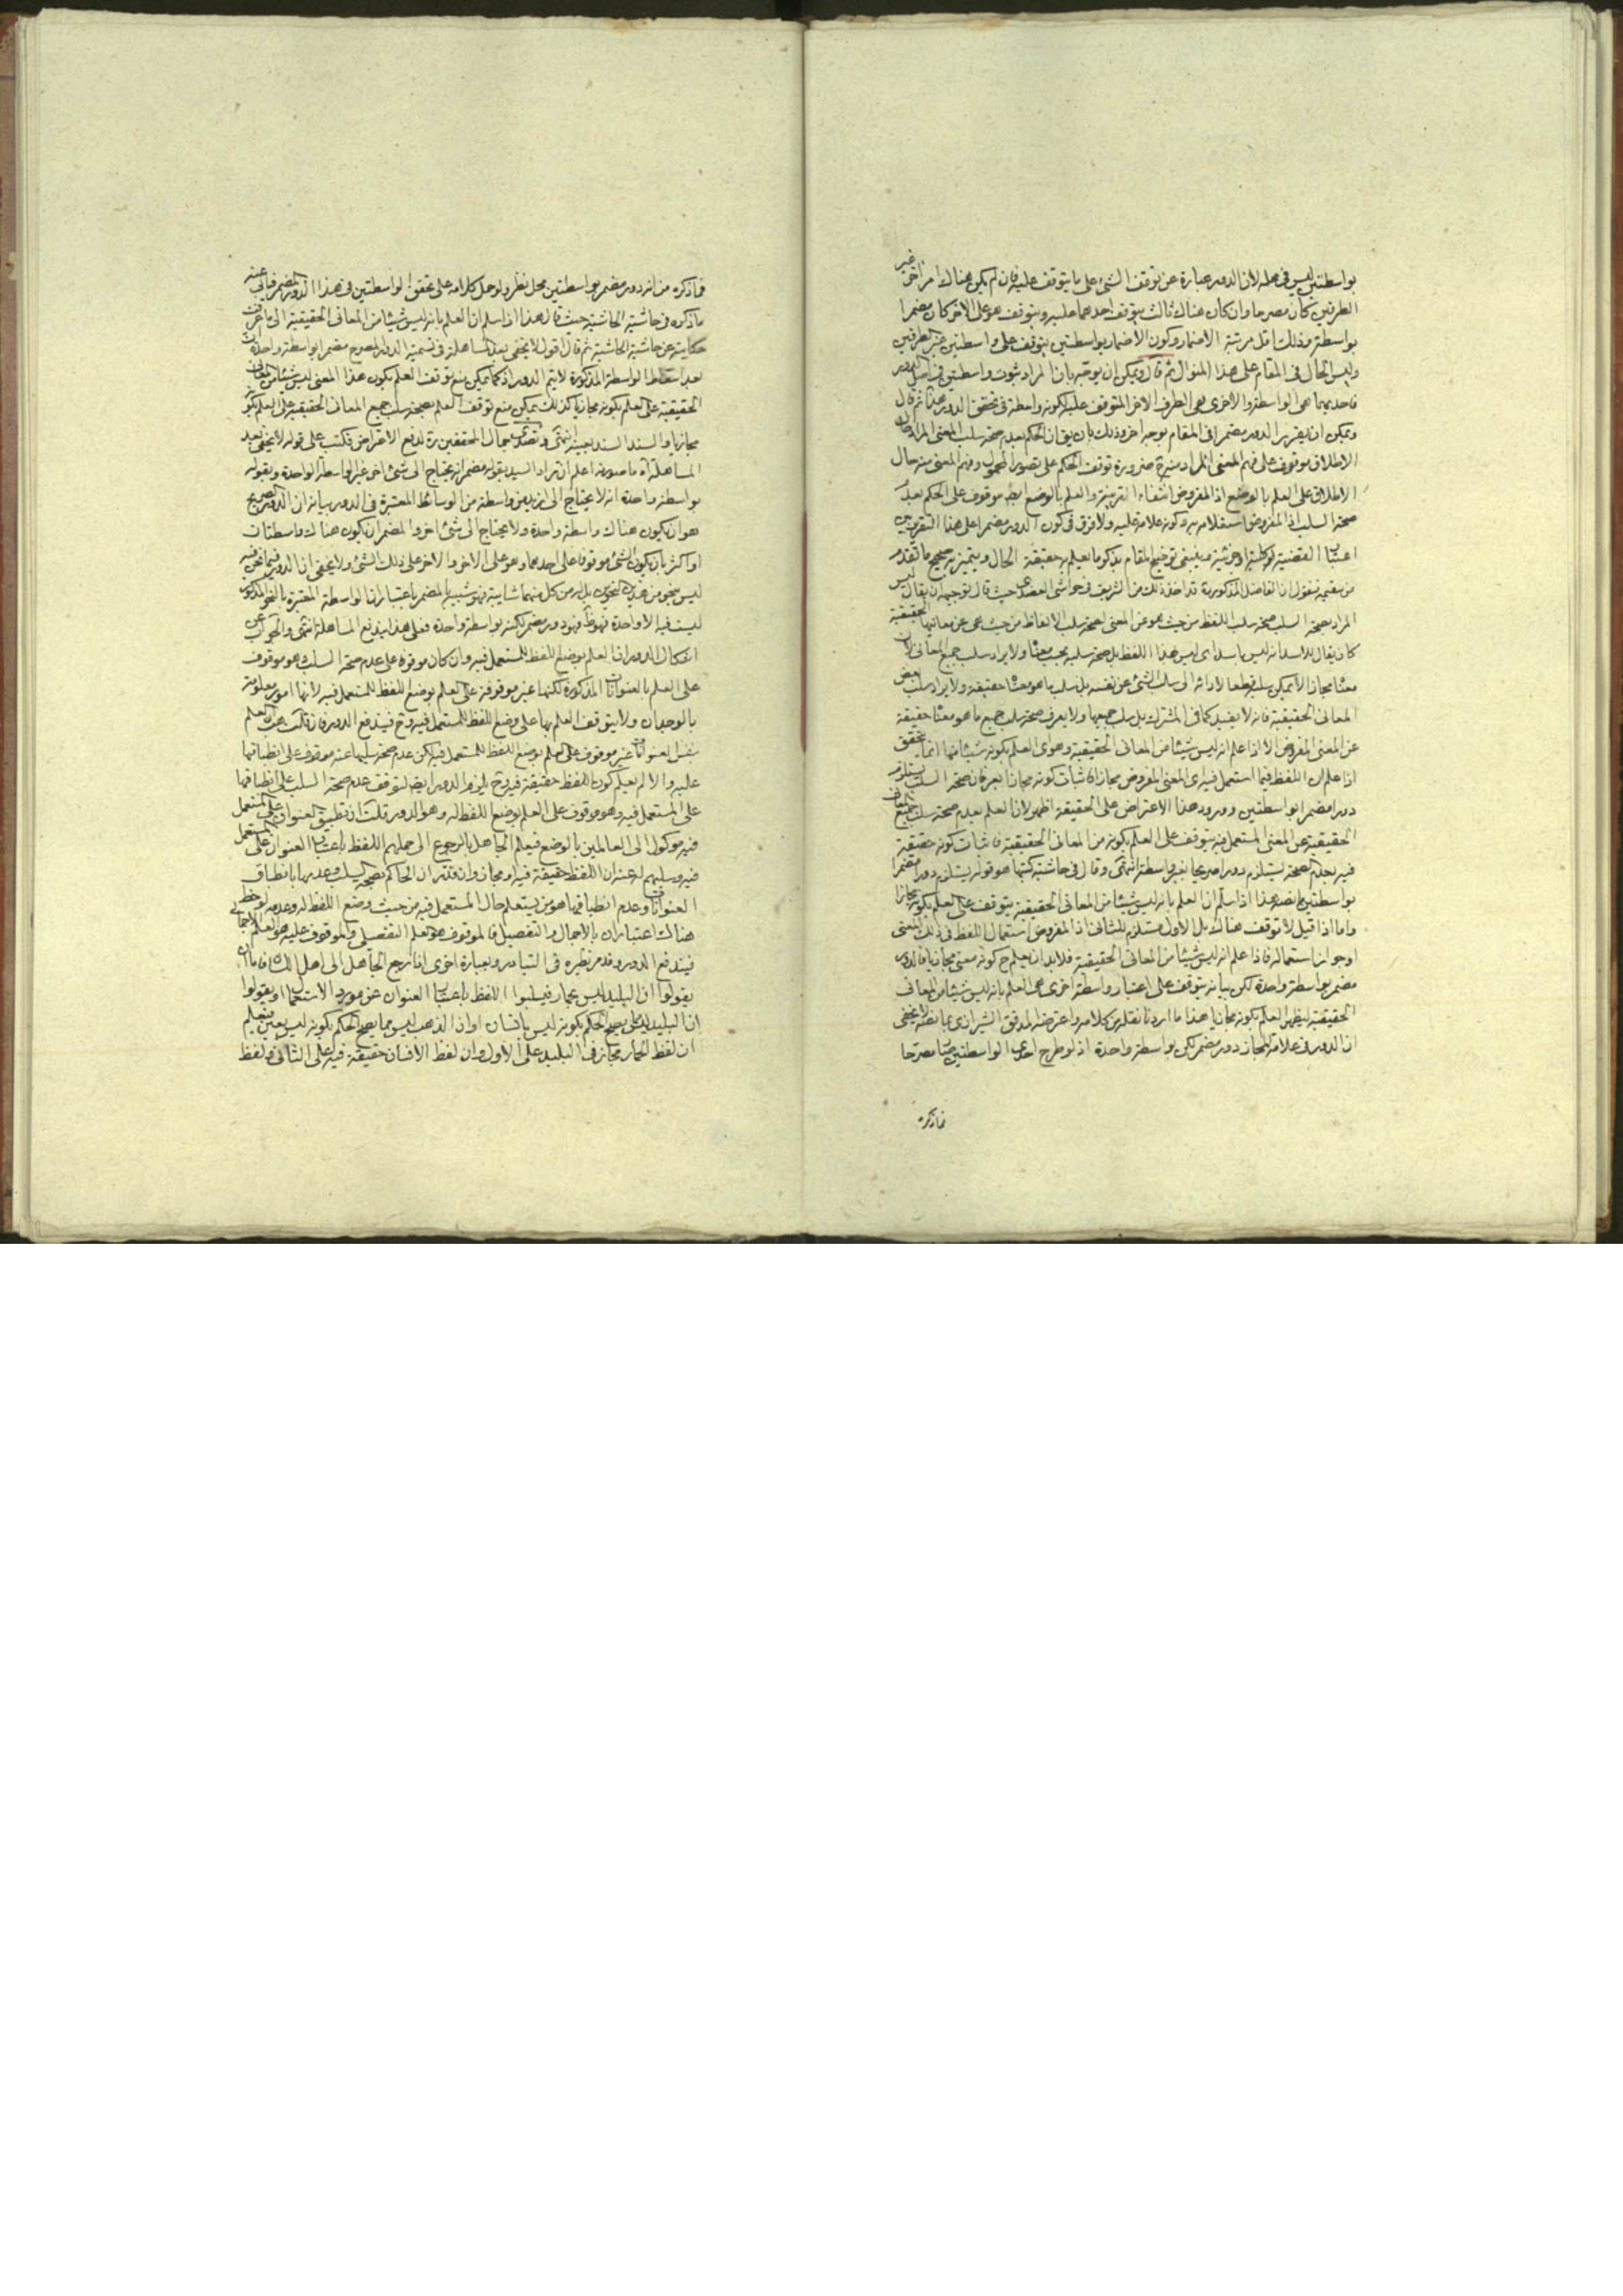 بواسطتين ليس فى محله لان الدور عبارة عن توقف الشئ على ما يتوقف عليه فان لم يكن هناك امر اخر غير
الطرفين كان مصرحا وان كان هناك ثالث يتوقف احدهما عليه ويتوقف هو على الاخر كان مضمرا
بواسطة وذلك اقل مرتبة الاضمار وكون الاضمار بواسطتين يتوقف على واسطتين غير الطرفين
وليس الحال فى المقام على هذا المنوال ثم قال ويمكن ان يوجه بان المراد ثبوت واسطتين فى اصل الدور
فاحديهما هى الواسطة والاخرى هى الطرف الاخر المتوقف عليه لكونه واسطة فى تحقق الدور ثم قال
ويمكن ان يقرر الدور مضمرا فى المقام بوجه اخر وذلك بان يقال الحكم بعدم صحة سلب المعنى المراد حال
الاطلاق موقوف على فهم المعنى المراد منه ضرورة توقف الحكم على تصور المحمول وفهم المعنى منه حال
الاطلاق على العلم بالوضع اذ المفروض انتفاء القرينة والعلم بالوضع ايضا موقوف على الحكم بعدم
صحة السلب اذ المفروض استعلامه به وكونه علامة عليه ولا فرق فى كون الدور مضمرا على هذا التقرير بين
اعتبار القضية كلية او جزئية وينبغى توضيح المقام بذكر ما يعلم به حقيقة الحال ويتميز به صحيح ما تقدم
من سقيمه فنقول ان الفاضل المذكور قد اخذ ذلك من الشريف فى حواشى العضدى حيث قال توجيهه ان يقال ليس
المراد بصحة السلب صحة سلب اللفظ من حيث هو عن المعنى لصحة سلب الالفاظ من حيث هى عن معانيها الحقيقية
كان يقال للاسد انه ليس باسد اى ليس هذا اللفظ بل صحة سلبه بحسب معناه ولا يراد سلب جميع المعانى لان
معناه مجازا لا يمكن سلبه قطعا لادائه الى سلب الشئ عن نفسه بل سلب ما هو معناه حقيقة ولا يراد سلب بعض
المعانى الحقيقية فانه لا يفيد كما فى المشترك بل سلب جميعها ولا يعرف صحة سلب جميع ما هو معناه حقيقة
عن المعنى المفروض الا اذا علم انه ليس شيئا من المعانى الحقيقية ودعوى العلم بكونه شيئا منها انما يتحقق
اذا علم ان اللفظ فيما استعمل فيه اى المعنى المفروض مجاز فاثبات كونه مجازا بعرفان صحة السلب يستلزم
دورا مضمرا بواسطتين وورود هذا الاعتراض على الحقيقة اظهر لان العلم بعدم صحة سلب جميع المعانى
الحقيقية عن المعنى المستعمل فيه يتوقف على العلم بكونه من المعانى الحقيقية فاثبات كونه حقيقة
فيه بعدم الصحة يستلزم دورا صريحا بغير واسطة انتهى وقال فى حاشية كتبها هو قوله يستلزم دورا مضمرا
بواسطتين ما نصه هذا اذا سلم ان العلم بانه ليس شيئا من المعانى الحقيقية يتوقف على العلم بكونه مجازا
واما اذا قيل لا توقف هناك بل الاول مستلزم للثانى اذ المفروض استعمال اللفظ فى ذلك المعنى
او جواز استعماله فاذا علم انه ليس شيئا من المعانى الحقيقية فلا بد ان يعلم ح كونه معنى مجازيا فالدور
مضمر بواسطة واحدة لكن بيانه يتوقف على اعتبار واسطة اخرى هى العلم بانه ليس شيئا من المعانى
الحقيقية ليظهر العلم بكونه مجازيا هذا ما اردنا نقله من كلامه واعترضه المدقق الشيرازى بما نصه لا يخفى
ان الدور فى علامة المجاز دور مضمر لكن بواسطة واحدة اذ لو طرح احدى الواسطتين صار مصرحا
فما ذكره
فما ذكره من انه دور مضمر بواسطتين محل نظر ولو حمل كلامه على تحقق الواسطتين فى هذا الدور المضمر فيأبى عنه
ما ذكره فى حاشية الحاشية حيث قال هذا اذا سلم ان العلم بانه ليس شيئا من المعانى الحقيقية الى ما عرفت
حكايته عن حاشية الحاشية ثم قال اقول لا يخفى بعد المساهلة فى تسمية الدور المصرح مضمرا بواسطة واحدة ان
بعد اسقاط الواسطة المذكورة لا يتم الدور اذ كما يمكن منع توقف العلم بكون هذا المعنى ليس شيئا من المعانى
الحقيقية على العلم بكونه مجازيا كذلك يمكن منع توقف العلم بصحة سلب جميع المعانى الحقيقية على العلم بكونه
مجازيا والسند السند بعينه انتهى وتصدى جمال المحققين ره لدفع الاعتراض فكتب على قوله لا يخفى بعد
المساهلة اه ما صورته اعلم ان مراد السيد بقوله مضمر انه يحتاج الى شئ اخر غير الواسطة الواحدة وبقوله
بواسطة واحدة انه لا يحتاج الى ازيد من واسطة من الوسائط المعتبرة فى الدور بيانه ان الدور الصريح
هو ان يكون هناك واسطة واحدة ولا يحتاج الى شئ اخر والمضمر ان يكون هناك واسطتان
او اكثر بان يكون الشئ موقوفا على احدهما وهو على الاخر والاخر على ذلك الشئ ولا يخفى ان الدور فيما نحن فيه
ليس بنحو من هذين النحوين بل له من كل منهما شائبة فهو شبيه بالمضمر باعتبار ان الواسطة المعتبرة بالنحو المذكور
ليست فيه الا واحدة فهو دور مضمر لكنه بواسطة واحدة فعلى هذا يندفع المساهلة انتهى والجواب عن
اشكال الدور ان العلم بوضع اللفظ للمستعمل فيه وان كان موقوفا على عدم صحة السلب وهو موقوف
على العلم بالعنوانات المذكورة لكنها غير موقوفة على العلم بوضع اللفظ للمستعمل فيه لانها امور معلومة
بالوجدان ولا يتوقف العلم بها على وضع اللفظ للمستعمل فيه وح فيندفع الدور فان قلت هب ان العلم
بنفس العنوانات غير موقوف على العلم بوضع اللفظ للمستعمل فيه لكن عدم صحة سلبها عنه موقوف على انطباقها
عليه والا لم يعلم كون اللفظ حقيقة فيه وح يلزم الدور ايضا لتوقف عدم صحة السلب على انطباقها
على المستعمل فيه وهو موقوف على العلم بوضع اللفظ له وهو الدور قلت ان تطبيق العنوان على المستعمل
فيه موكول الى العالمين بالوضع فيعلم الجاهل بالرجوع الى حملهم اللفظ باعتبار العنوان على المستعمل
فيه وسلبهم له عنه ان اللفظ حقيقة فيه او مجاز وان قلت ان الحاكم بصحة السلب وعدمها بانطباق
العنوانات وعدم انطباقها هو من يستعلم حال المستعمل فيه من حيث وضع اللفظ له وعدمه لوحظ
هناك اعتباران بالاجمال والتفصيل فالموقوف هو العلم التفصيلى والموقوف عليه هو العلم الاجمالى
فيندفع الدور وقد مر نظيره فى التبادر وبعبارة اخرى اذا رجع الجاهل الى اهل اللسان فاما ان
يقولوا ان البليد ليس بحمار فيسلبوا اللفظ باعتبار العنوان عن مورد الاستعمال او يقولوا
ان البليد ليس ممن يصح الحكم بكونه ليس بانسان او ان الذهب ليس مما يصح الحكم بكونه ليس بعين فيعلم
ان لفظ الحمار مجاز فى البليد على الاول وان لفظ الانسان حقيقة فيه على الثانى ولفظ